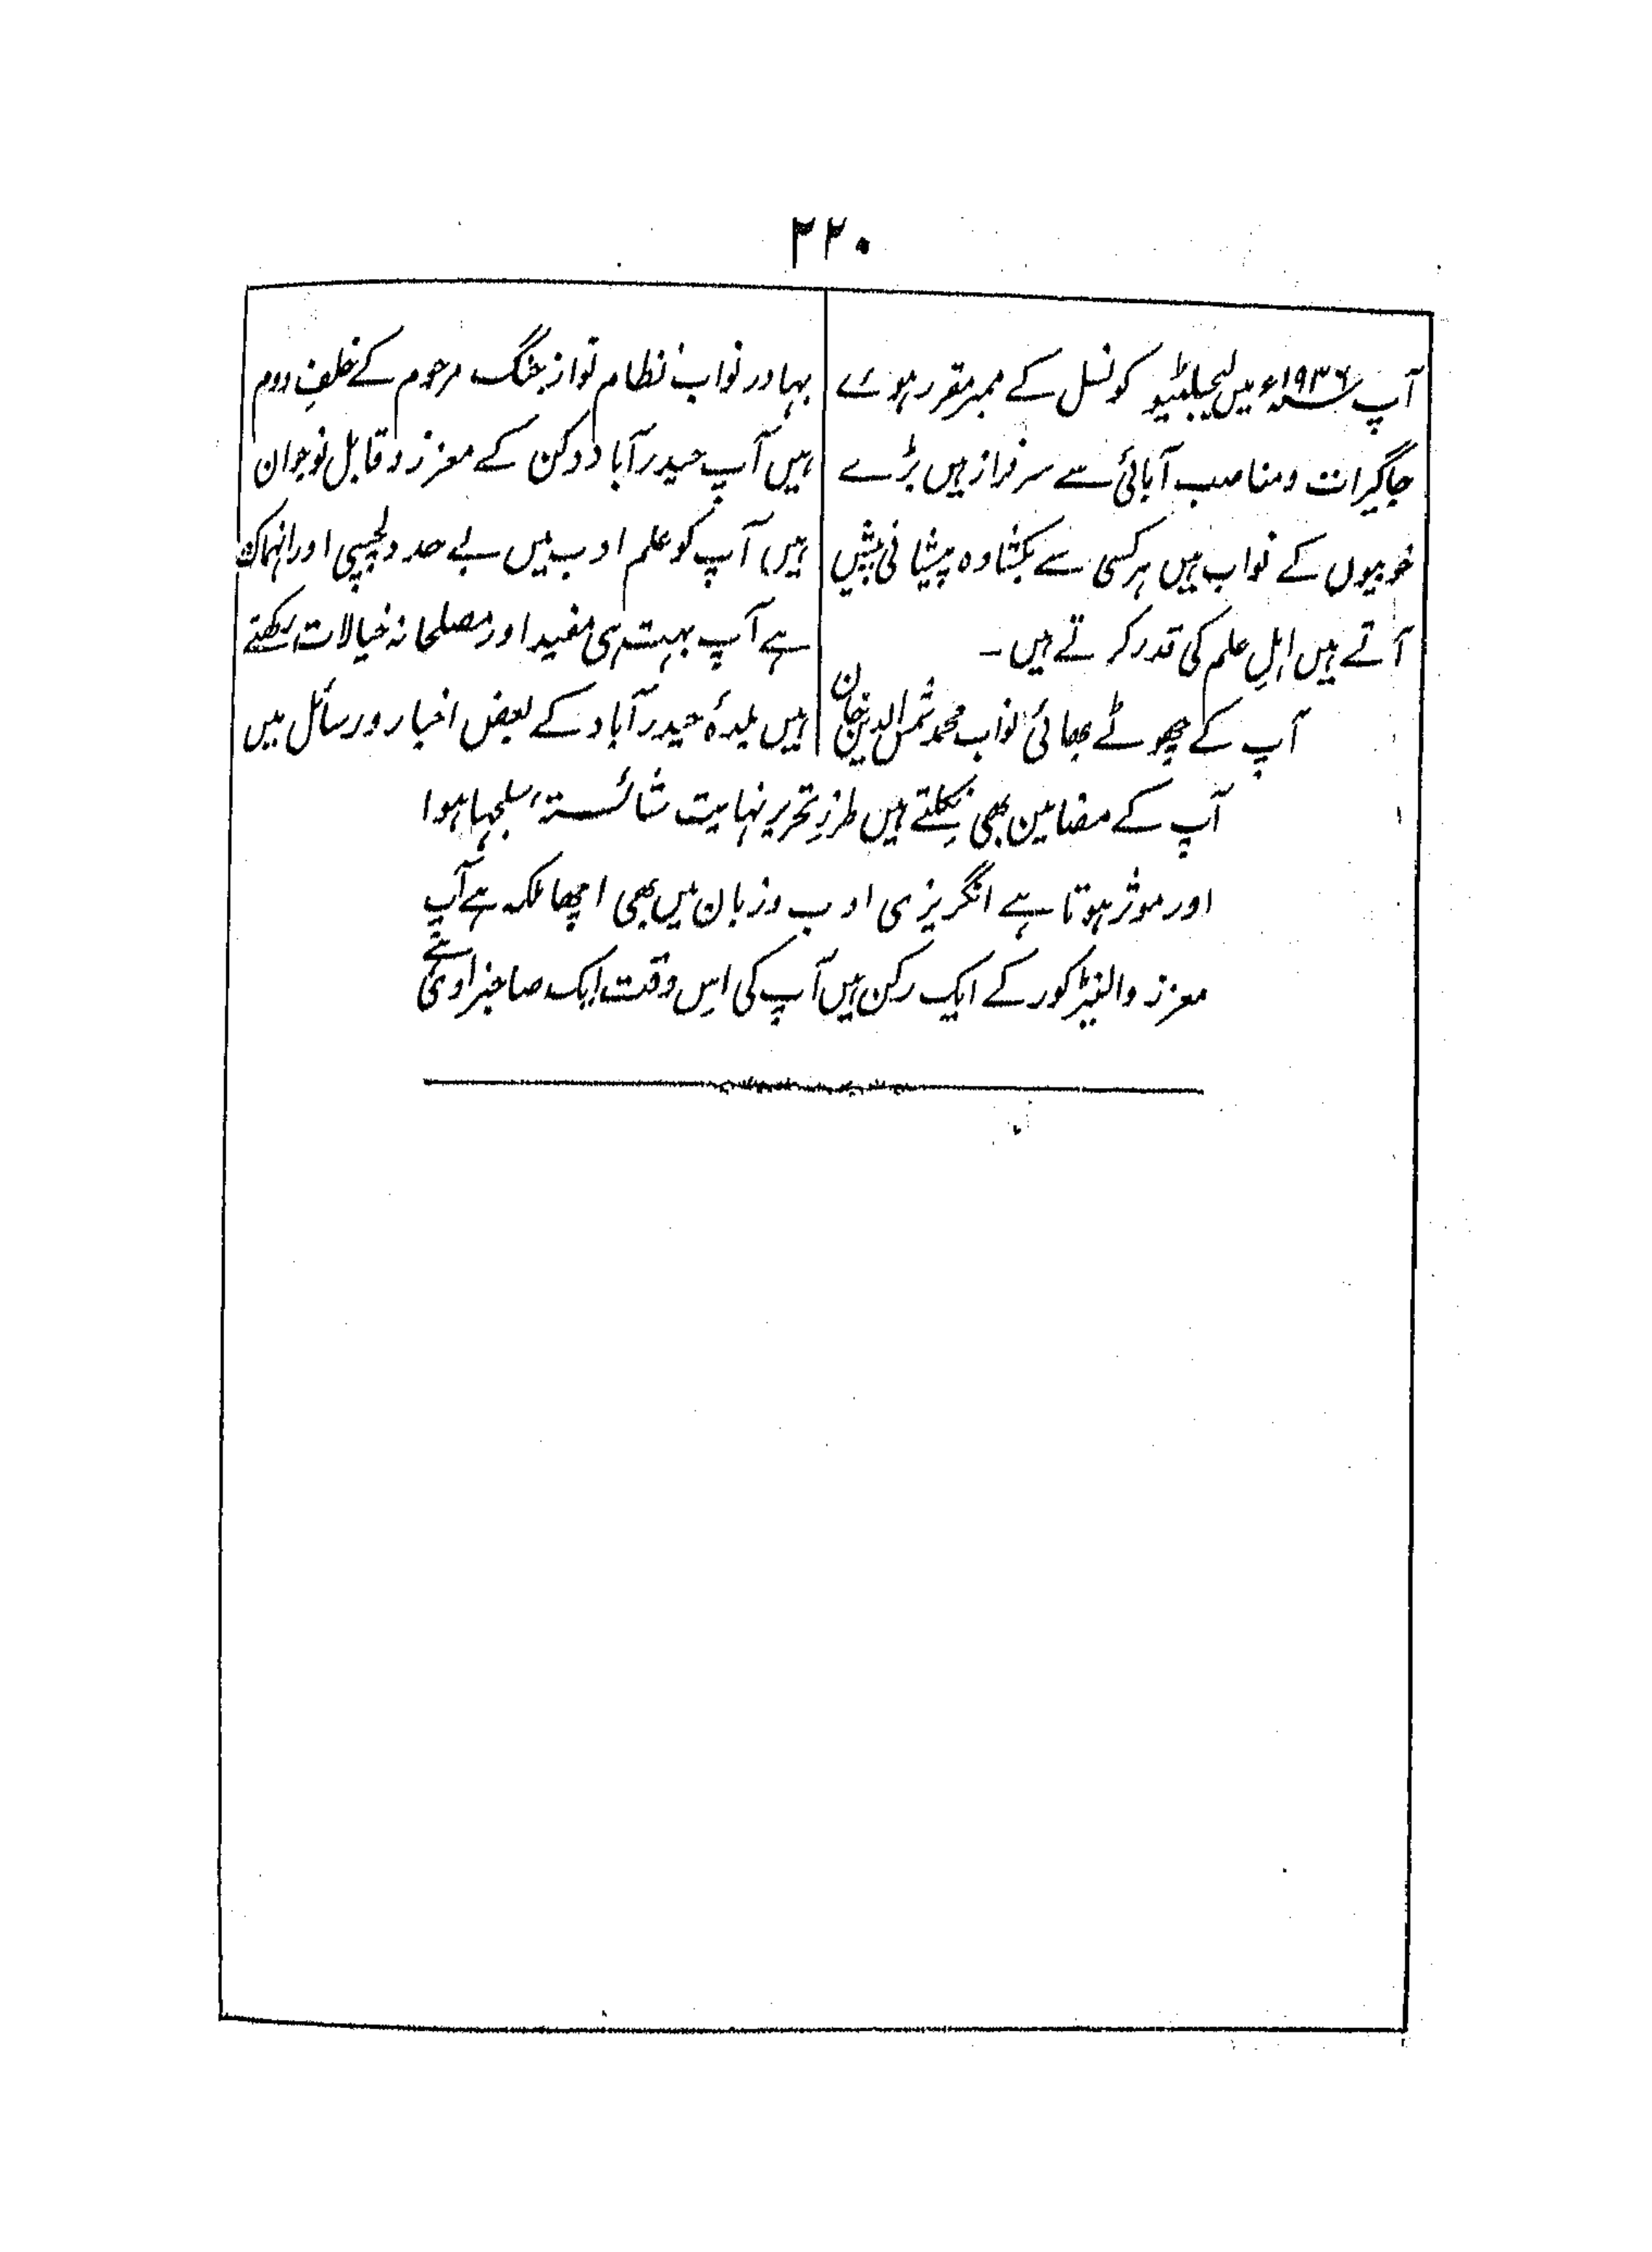 ۲۲۰
آپ ۱۹۳۶ء میں لیجیلٹیو کونسل کے ممبر مقرر ہوے
جاگیرات و مناصب آبائی سے سرفراز ہیں بڑے
خوبیوں کے نواب ہیں ہر کسی سے بکشادہ پیشانی پیش
آتے ہیں اہلِ علم کی قدر کرتے ہیں۔
آپ کے چھوٹے بھائی نواب محمد شمس الدین خان
بہادر نواب نظام نواز جنگ مرحوم کے خلفِ دوم
ہیں آپ حیدرآباد دکن کے معزز و قابل نوجوان
ہیں آپ کو علم ادب میں بے حد دلچسپی اور انہماک
ہے آپ بہت ہی مفید اور مصلحانہ خیالات رکھتے
ہیں بلدۂ حیدرآباد کے بعض اخبار و رسائل میں
آپ کے مضامین بھی نکلتے ہیں طرزِ تحریر نہایت شائستہ، سلجہا ہوا
اور موثر ہوتا ہے انگریزی ادب و زبان میں بھی اچھا ملکہ ہے آپ
معزز والنیڑ کور کے ایک رکن ہیں آپ کی اِس وقت ایک صاحبزادی ہے